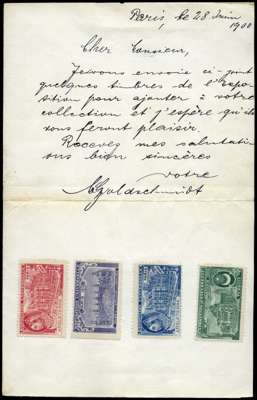 Paris, le 28 Juin
1900
Cher Monsieur,
Je vous envoie ci-joint
quelques timbres de l'Expo-
sition pour ajouter à votre
collection et j'espère qu'ils
vous feront plaisir.
Recevez mes salutati
ons bien sincères
Votre
A Goldschmidt